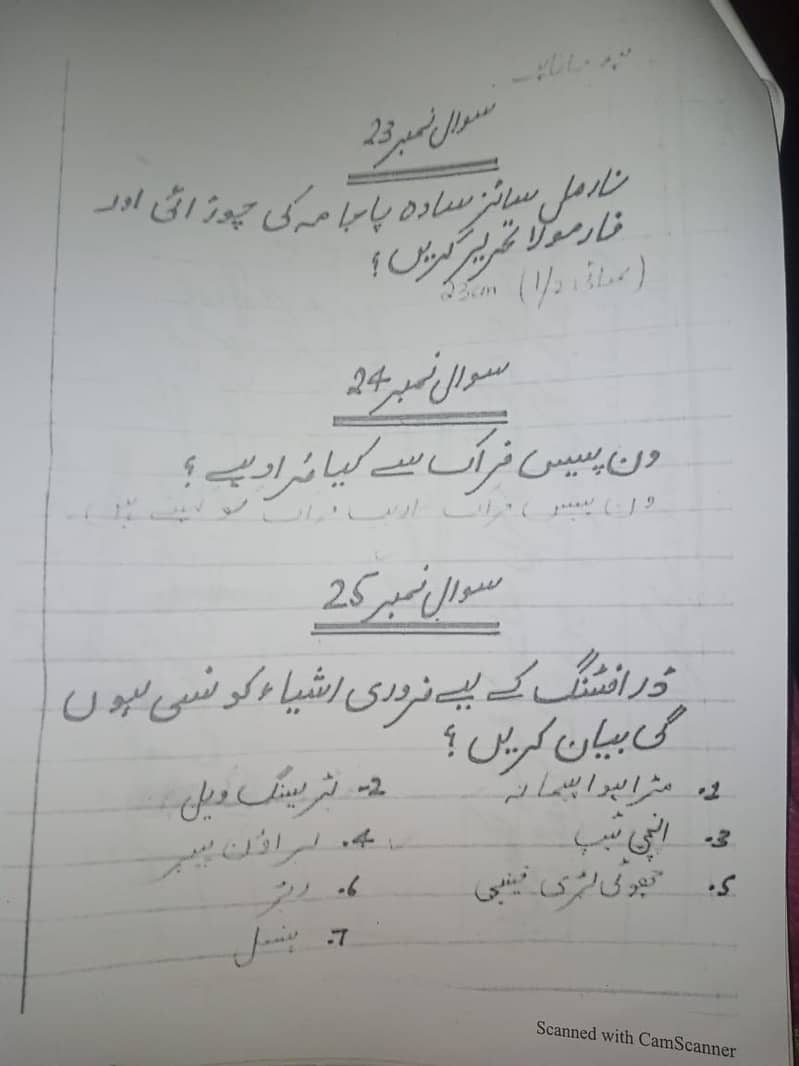 سوال نمبر 23
نارمل سائز سادہ پاجامہ کی چوڑائی اور
فارمولا تحریر کریں؟
23cm (1/2
سوال نمبر 24
ون پیس فراک سے کیا مراد ہے؟
ون پیس فراک
سوال نمبر 25
ڈرافٹنگ کے لیے ضروری اشیاء کونسی ہوں
گی بیان کریں؟
1. مڑا ہوا پیمانہ 2- ٹریسنگ ویل
3. انچی ٹیپ 4. براؤن پیپر
5. چھوٹی بڑی قینچی 6. ربڑ
7. پنسل
Scanned with CamScanner